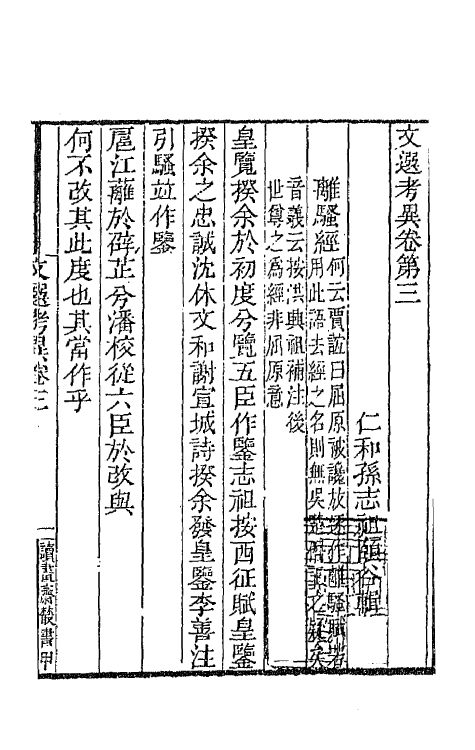 文選考異卷第三
仁和孫志祖頤谷輯
離騷經何云賈誼曰屈原被讒放逐作離騷賦若
用此語去經之名則無吳
音義云按洪興祖補注後
世尊之爲經非屈原意
皇覽揆余於初度兮覽五臣作鑒志祖按西征賦皇鑒
揆余之忠誠沈休文和謝宣城詩揆余發皇鑒李善注
引騷並作鑒
扈江蘺於薜芷兮潘校從六臣於改與
何不改其此度也其當作乎
文選考異卷三
一
讀畫齋叢書甲